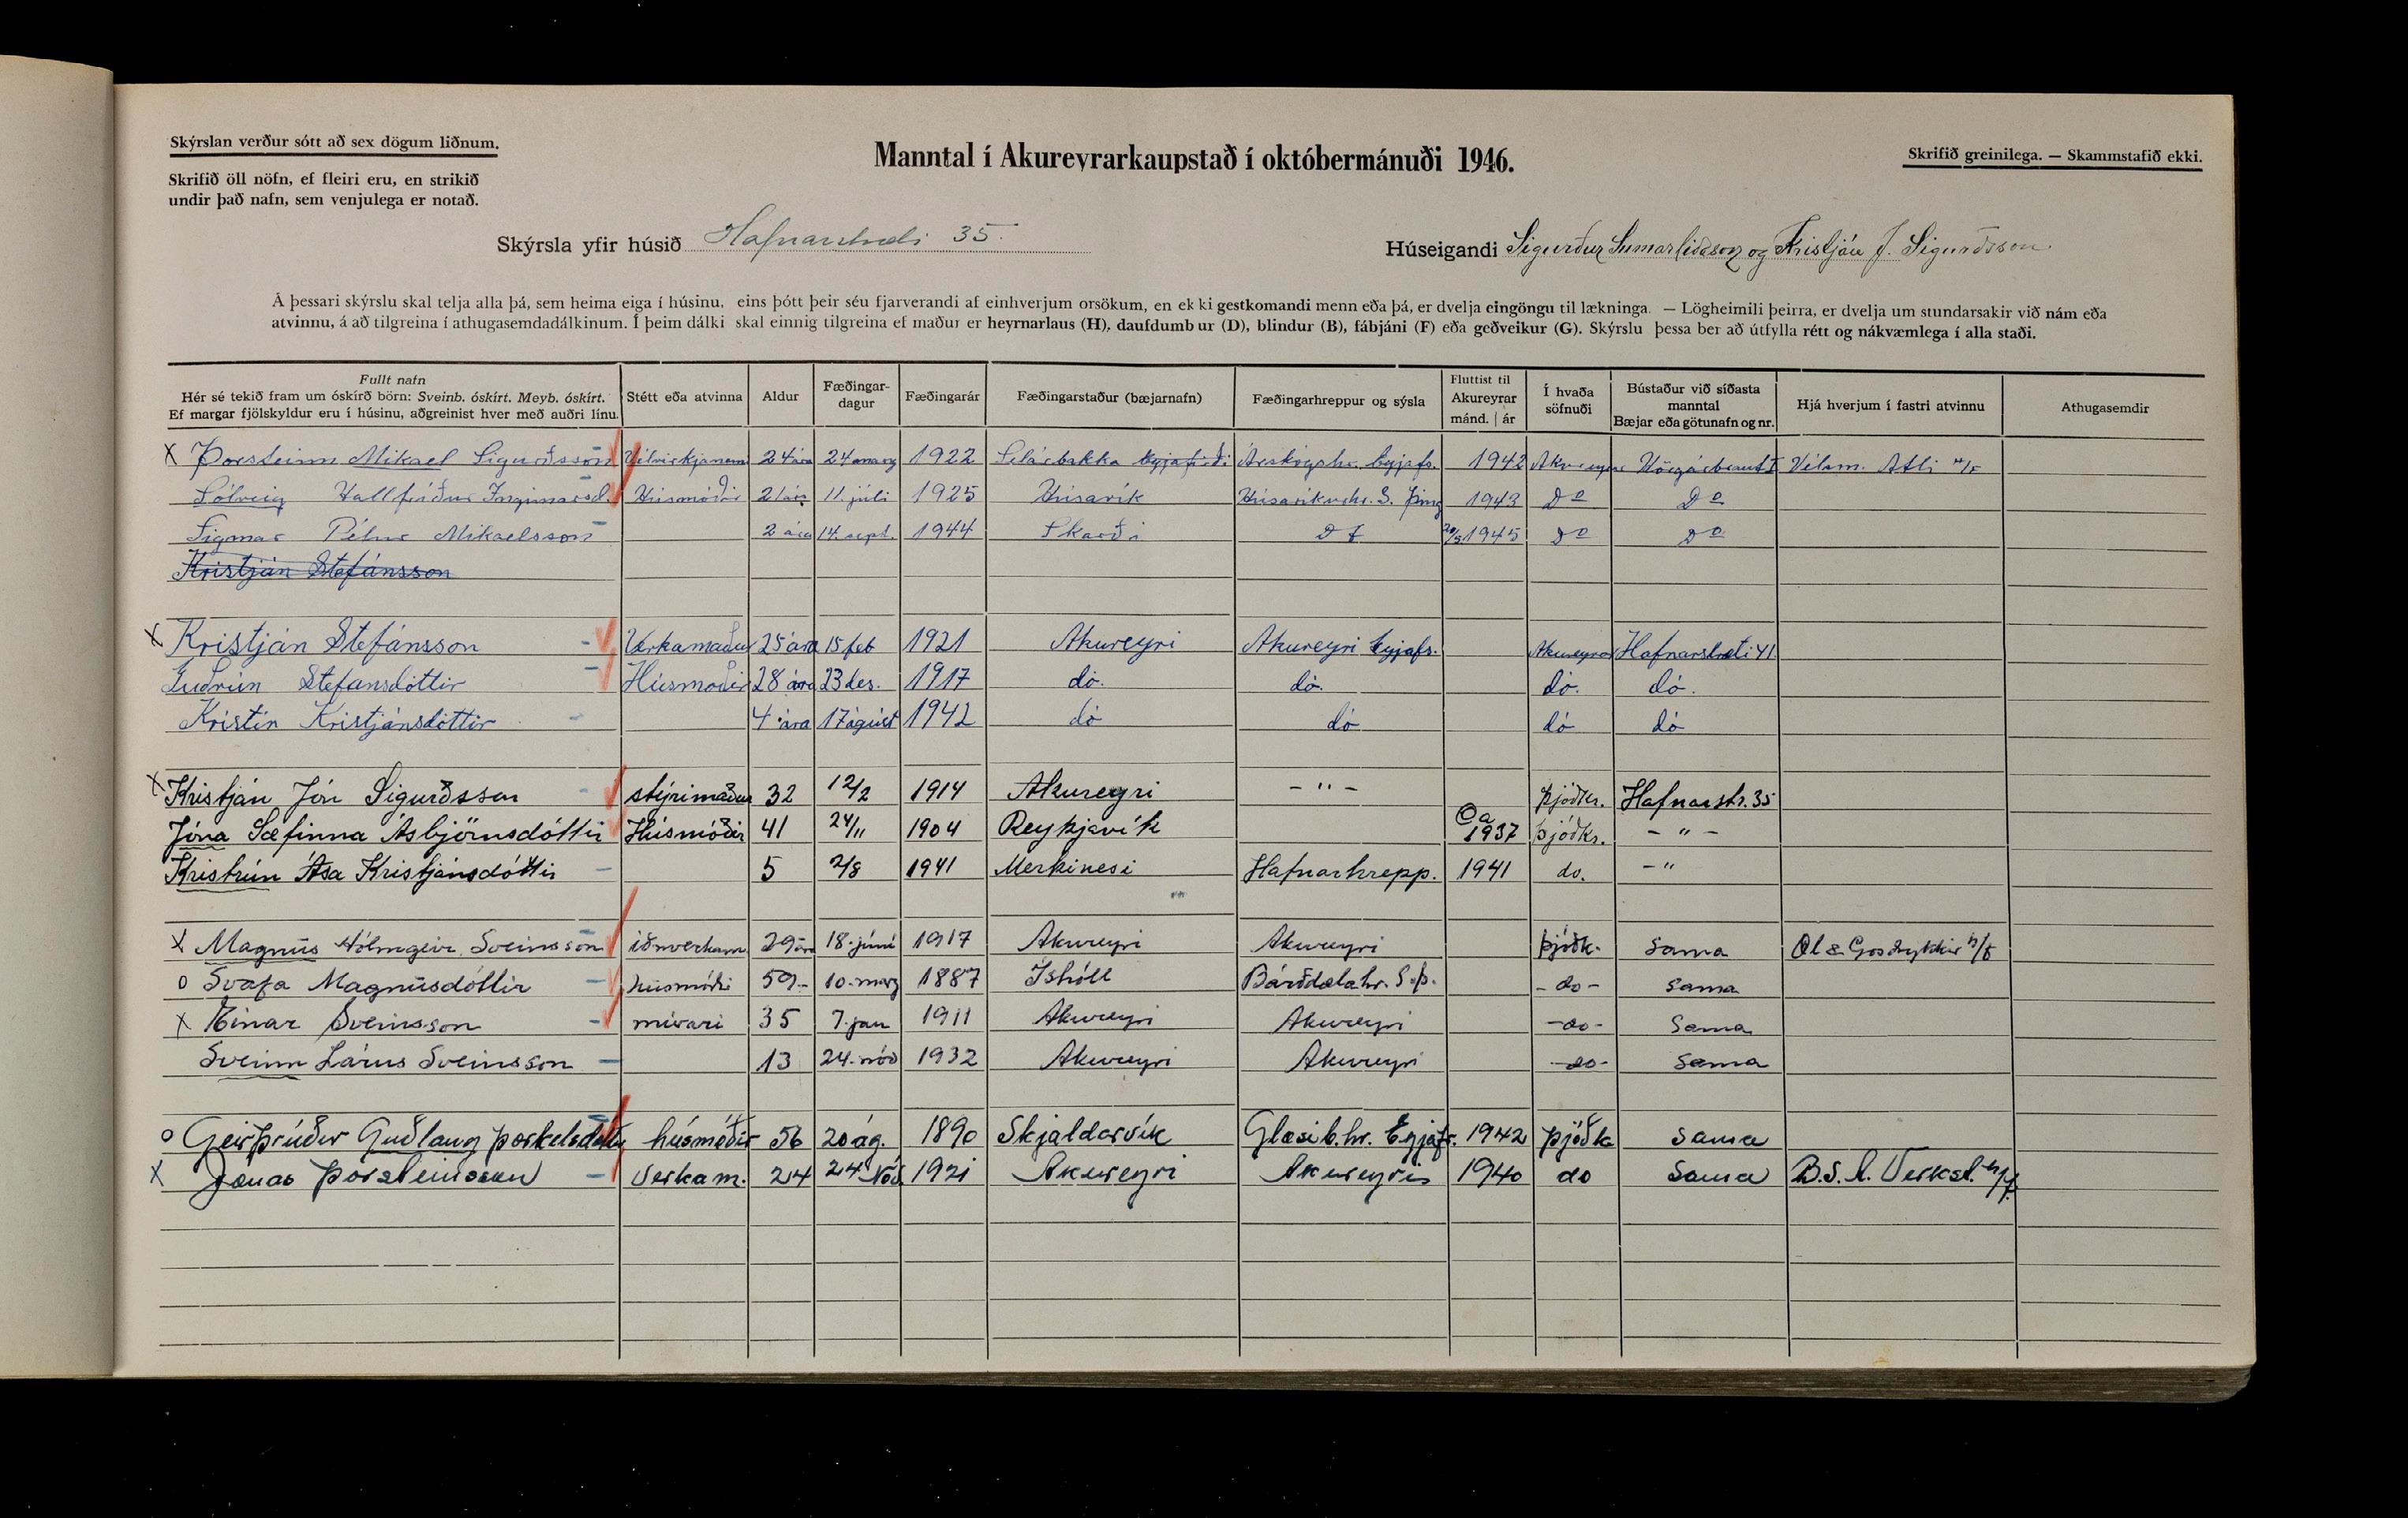 Skýrslan verður sótt að sex dögum liðnum.
Skrifið öll nöfn, ef fleiri eru, en strikið
undir það nafn, sem venjulega er notað.
Manntal í Akureyrarkaupstað í októbermánuði 1946.
Skrifið greinilega. — Skammstafið ekki.
Skýrsla yfir húsið Hafnarstræti 35.
Húseigandi Sigurður Sumarliðason og Kristján J. Sigurðsson.
Á þessari skýrslu skal telja alla þá, sem heima eiga í húsinu, eins þótt þeir séu fjarverandi af einhverjum orsökum, en ekki gestkomandi menn eða þá, er dvelja eingöngu til lækninga. — Lögheimili þeirra, er dvelja um stundarsakir við nám eða
atvinnu, á að tilgreina í athugasemdadálkinum. Í þeim dálki skal einnig tilgreina ef maður er heyrnarlaus (H), daufdumbur (D), blindur (B), fábjáni (F) eða geðveikur (G). Skýrslu þessa ber að útfylla rétt og nákvæmlega í alla staði.
Fullt nafn
Hér sé tekið fram um óskírð börn: Sveinb. óskírt. Meyb. óskírt.
Ef margar fjölskyldur eru í húsinu, aðgreinist hver með auðri línu.
Stétt eða atvinna
Aldur
Fæðingar-
dagur
Fæðingarár
Fæðingarstaður (bæjarnafn)
Fæðingarhreppur og sýsla
Fluttist til
Akureyrar
mánd. | ár
Í hvaða
söfnuði
Bústaður við síðasta
manntal
Bæjar eða götunafn og nr.
Hjá hverjum í fastri atvinnu
Athugasemdir
X Þorsteinn Mikael Sigurðsson Vélvirkjanemi 24 ára 24 marz 1922 Selárbakka Eyjafirði Árskógshr. Eyjafs. 1942 Akureyrar Vélsm. Atli h/f
Sólveig Hallfríður Ingimarsd. Húsmóðir 21 árs 11. júlí 1925 Húsavík Húsavíkurhr. S. Þing 1943 Do Do
Sigmar Pétur Mikaelsson 2 ára 14. sept. 1944 Skarði 1945 Do Do
Kristján Stefánsson
X Kristján Stefánsson Verkamaður 25 ára 15 feb 1921 Akureyri Akureyri Eyjafs. Akureyrar Hafnarstræti 41
Guðrún Stefansdóttir Húsmóðir 28 ára 23 des. 1917 dó. dó. dó. dó.
Kristín Kristjánsdóttir 4 ára 17 ágúst 1942 dó dó dó dó
X Kristján Jón Sigurðsson stýrimaður 32 12/2 1914 Akureyri - " - Þjóðkr. Hafnarstr. 35
Jóna Sæfinna Ásbjörnsdóttir Húsmóðir 41 24/11 1904 Reykjavík Ca 1937 Þjóðkr. - " -
Kristrún Ása Kristjánsdóttir 5 2/8 1941 Merkinesi Hafnarhrepp. 1941 do. - "
X Magnús Hólmgeir Sveinsson iðnverkam. 29 ára 18. júní 1917 Akureyri Akureyri Þjóðk. Sama Öl & Gosdrykkir h/f
o Svafa Magnúsdóttir húsmóðir 59 10. marz 1887 Íshóll Bárðdælahr. S.þ. - do - Sama
X Einar Sveinsson múrari 35 7. jan 1911 Akureyri Akureyri - do - Sama
Sveinn Lárus Sveinsson 13 24. nóv 1932 Akureyri Akureyri - do - Sama
o Geirþrúður Guðlaug Þorkelsdóttir húsmóðir 56 20 ág. 1890 Skjaldarvík Glæsib.hr. Eyjafr. 1942 Þjóðk Sama
X Jónas Þorsteinsson Verkam. 24 24 Nóv. 1921 Akureyri Akureyri 1940 do Sama B.S.A. Verkst. h/f